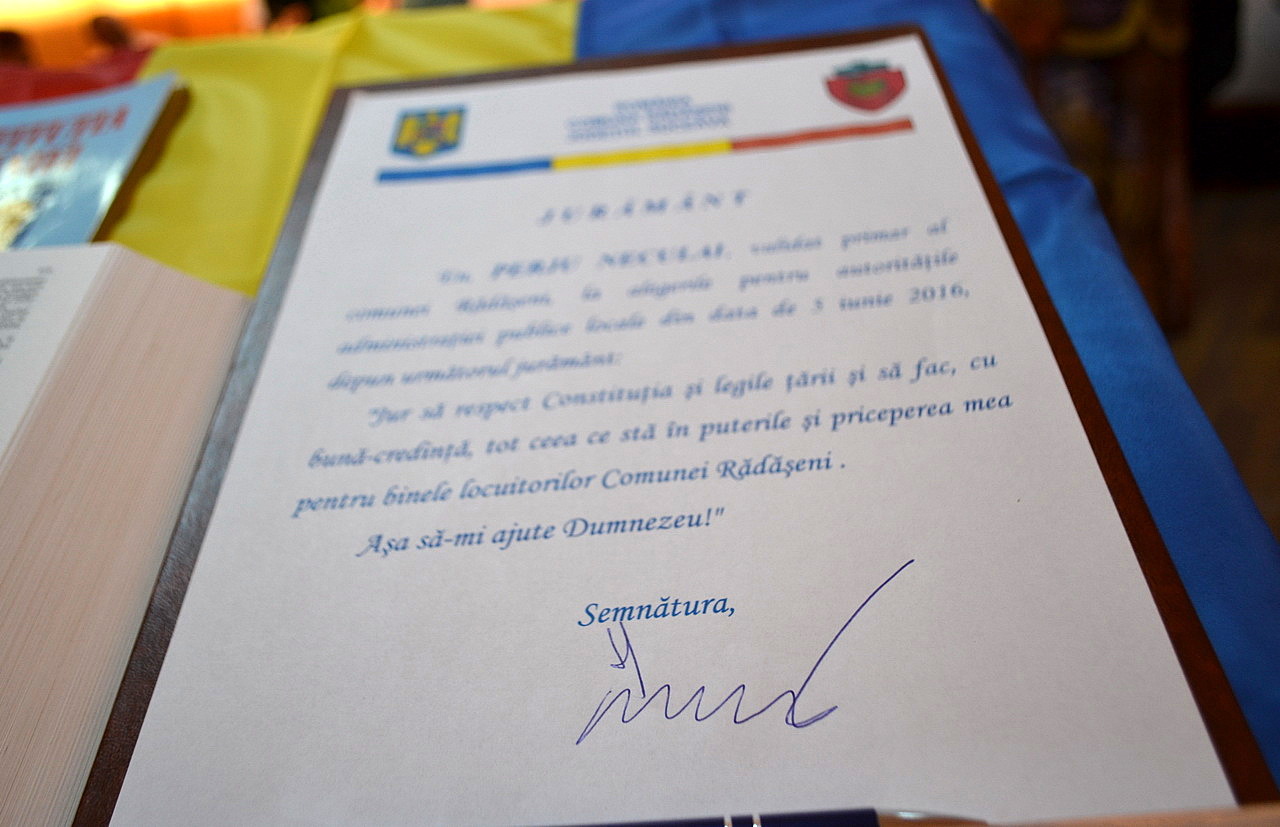 JURĂMÂNT
Eu, PERJU NECULAI, validat primar al
comunei Rădășeni, la alegerile pentru autoritățile
administrației publice locale din data de 5 iunie 2016,
depun următorul jurământ:
"Jur să respect Constituția și legile țării și să fac, cu
bună-credință, tot ceea ce stă în puterile și priceperea mea
pentru binele locuitorilor Comunei Rădășeni .
Așa să-mi ajute Dumnezeu!"
Semnătura,